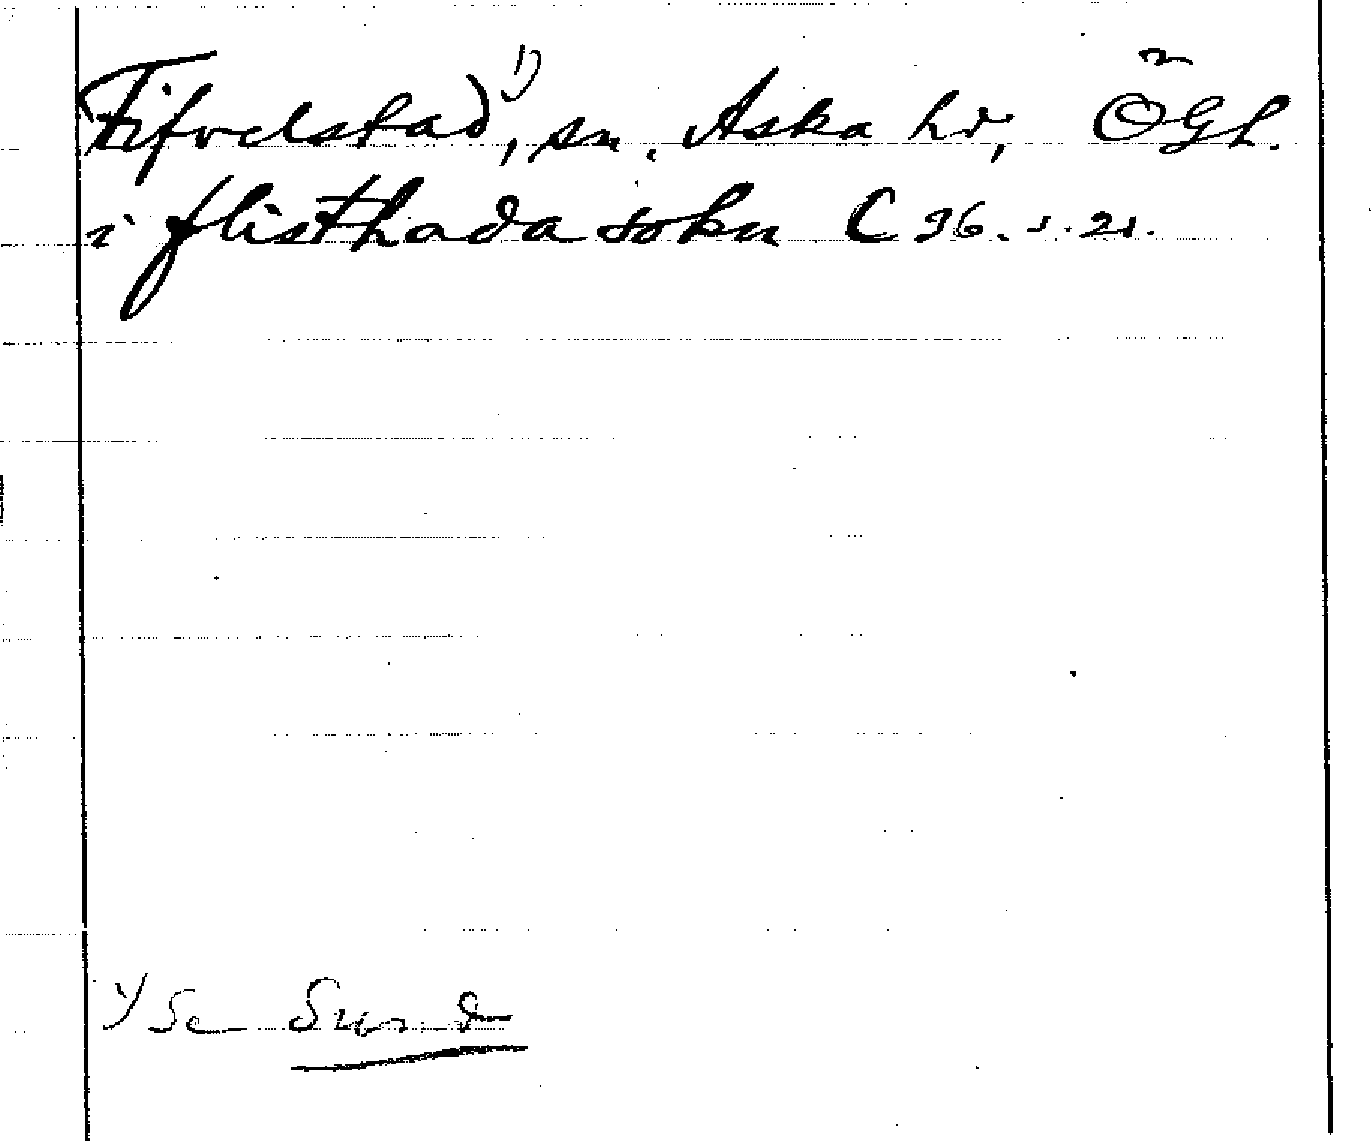 Fifvelstad¹⁾, sn. Aska hd, ÖGL.
i flisthada sokn C 36. s. 21.
¹⁾ Se Sund